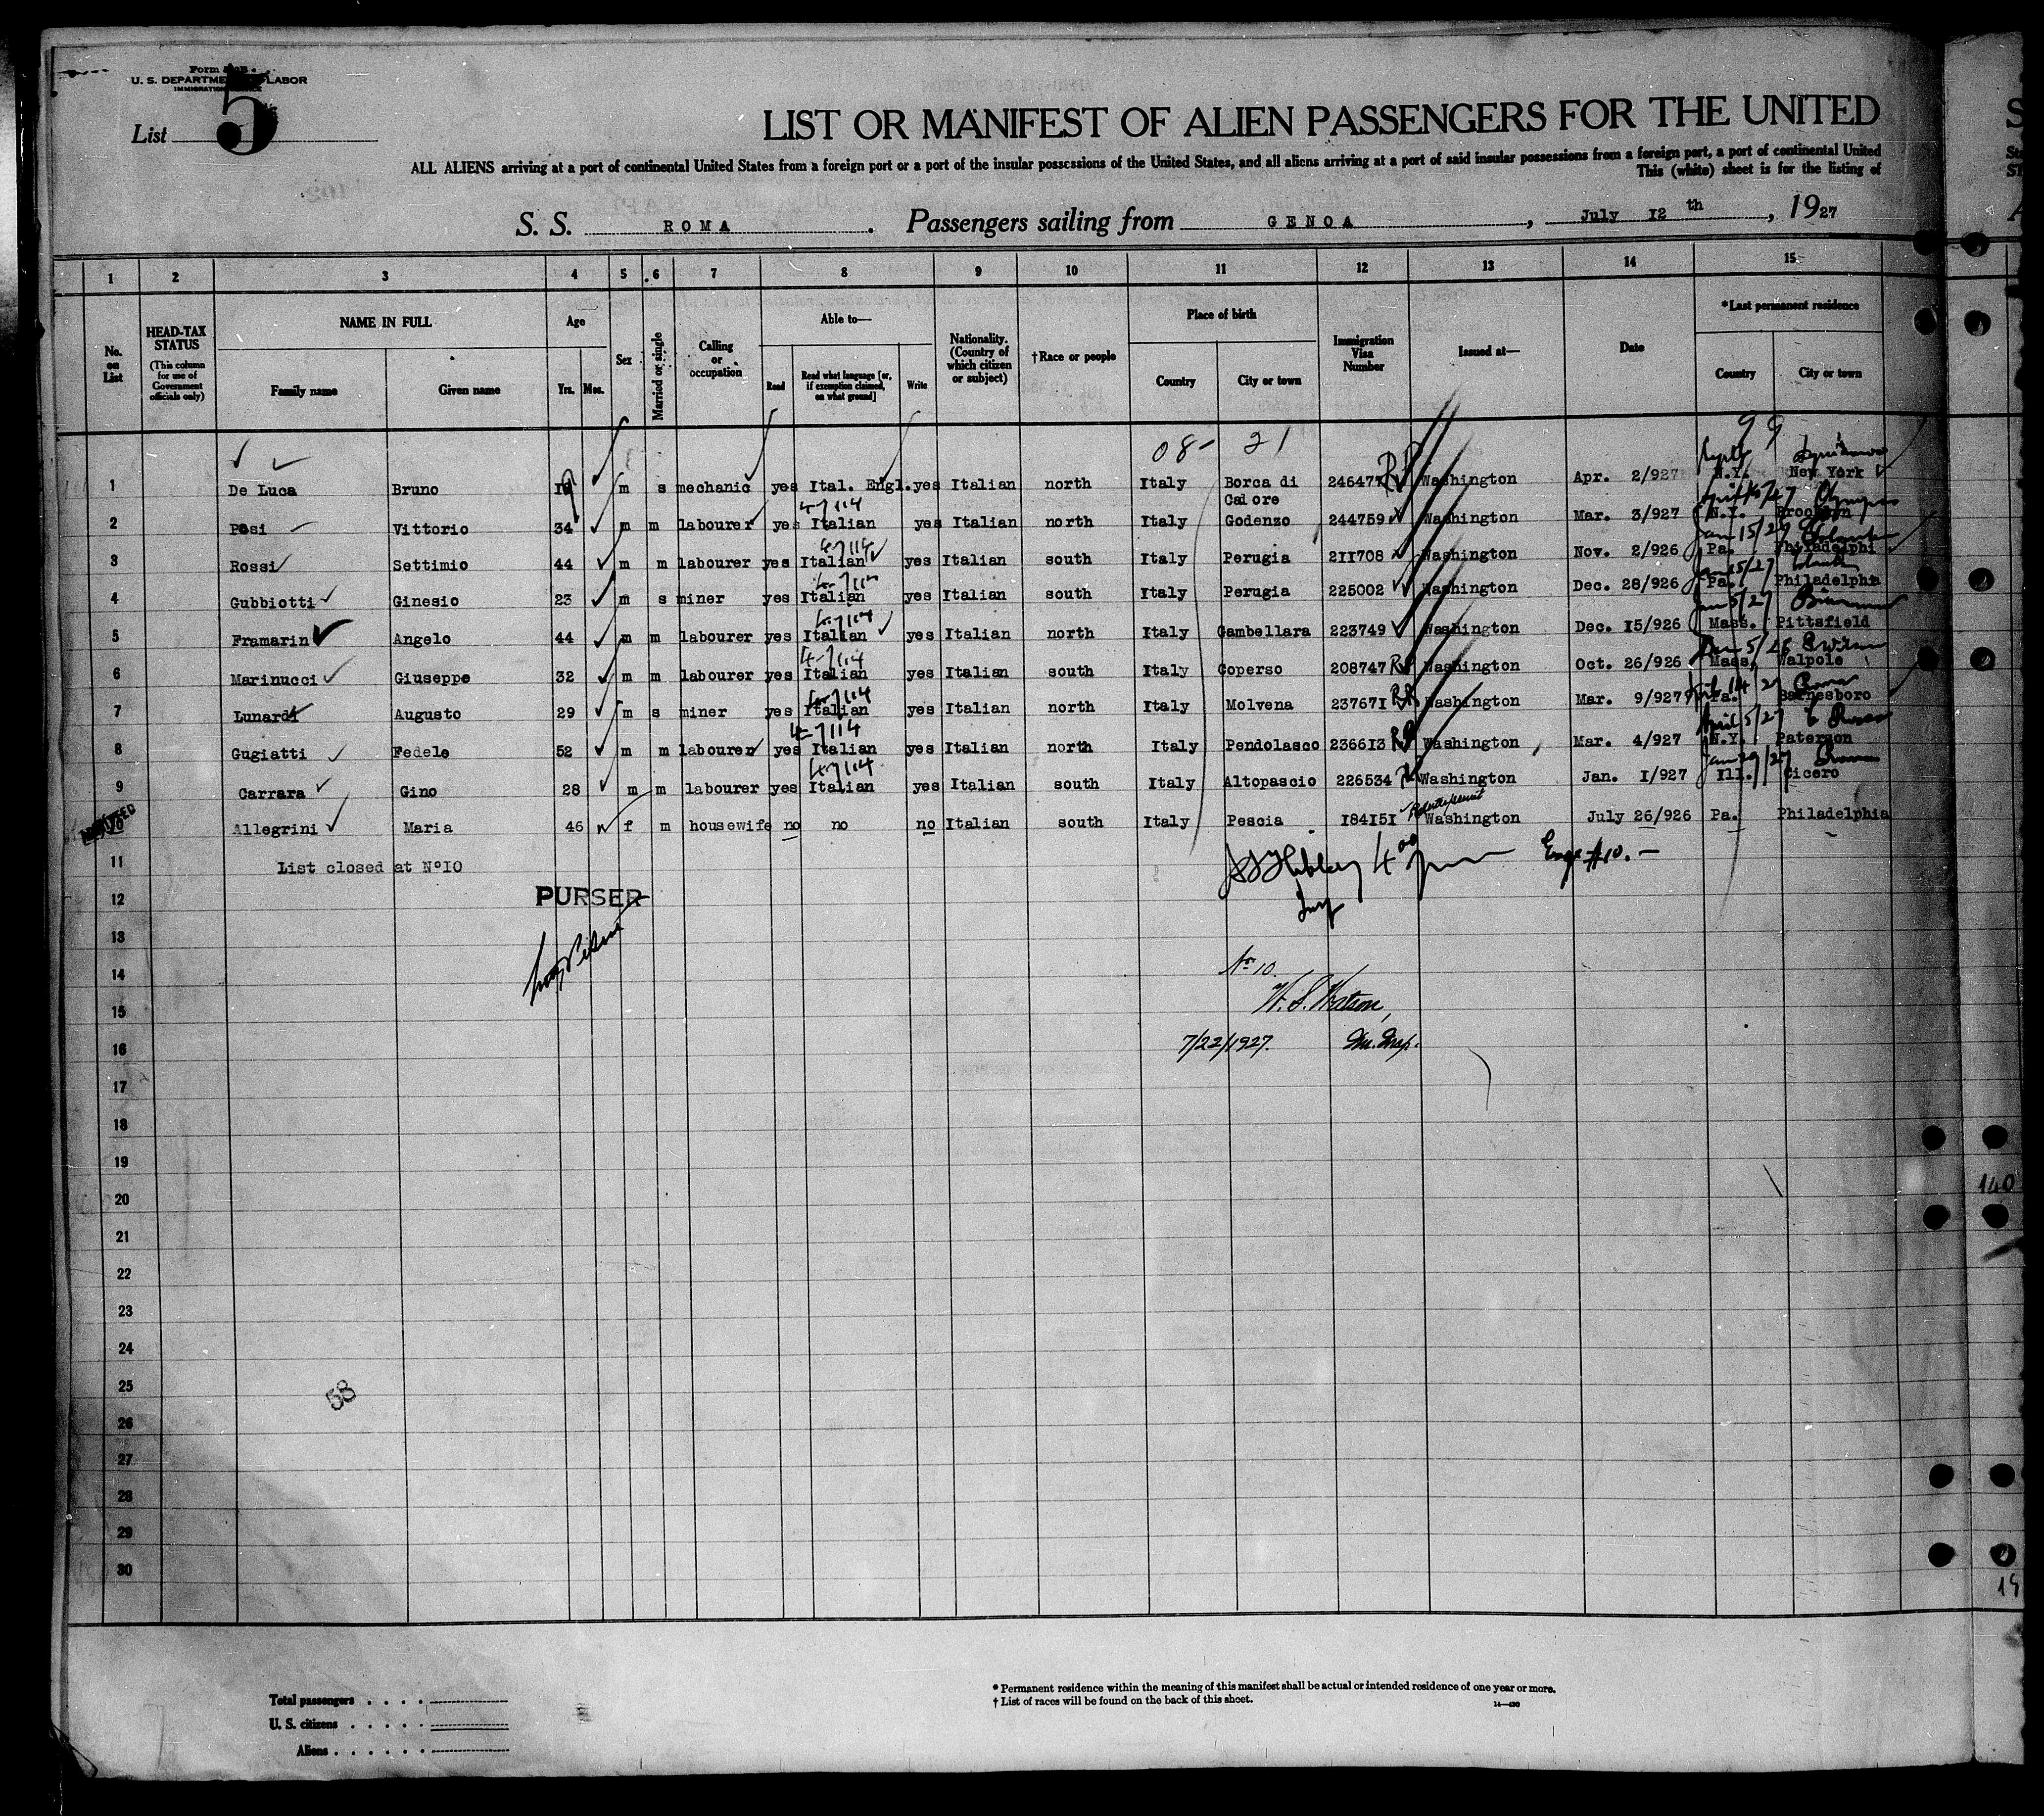 U. S. DEPARTMENT LABOR
List 5
LIST OR MANIFEST OF ALIEN PASSENGERS FOR THE UNITED
ALL ALIENS arriving at a port of continental United States from a foreign port or a port of the insular possessions of the United States, and all aliens arriving at a port of said insular possessions from a foreign port, a port of continental United
This (white) sheet is for the listing of
S. S. ROMA. Passengers sailing from GENOA, July 12th, 1927
1 2 3 4 5 6 7 8 9 10 11 12 13 14 15
No. on List
HEAD-TAX STATUS (This column for use of Government officials only)
NAME IN FULL Family name Given name
Age Yrs. Mos.
Sex
Married or single
Calling or occupation
Able to— Read Read what language [or, if exemption claimed, on what ground] Write
Nationality. (Country of which citizen or subject)
†Race or people
Place of birth Country City or town
Immigration Visa Number
Issued at—
Date
*Last permanent residence Country City or town
08- 21 99
1 De Luca Bruno m s mechanic yes Ital. Engl. yes Italian north Italy Borca di Cadore 246477 Washington Apr. 2/927 N.Y. New York
2 Posi Vittorio 34 m m labourer yes Italian yes Italian north Italy Godenzo 244759 Washington Mar. 3/927 N.Y. Brooklyn
3 Rossi Settimio 44 m m labourer yes Italian yes Italian south Italy Perugia 211708 Washington Nov. 2/926 Pa. Philadelphi
4 Gubbiotti Ginesio 23 m s miner yes Italian yes Italian south Italy Perugia 225002 Washington Dec. 28/926 Pa. Philadelphia
5 Framarin Angelo 44 m m labourer yes Italian yes Italian north Italy Gambellara 223749 Washington Dec. 15/926 Mass. Pittsfield
6 Marinucci Giuseppe 32 m m labourer yes Italian yes Italian south Italy Coperso 208747 Washington Oct. 26/926 Mass. Walpole
7 Lunardi Augusto 29 m s miner yes Italian yes Italian north Italy Molvena 237671 Washington Mar. 9/927 Pa. Barnesboro
8 Gugiatti Fedele 52 m m labourer yes Italian yes Italian north Italy Pendolasco 236613 Washington Mar. 4/927 N.Y. Paterson
9 Carrara Gino 28 m m labourer yes Italian yes Italian south Italy Altopascio 226534 Washington Jan. 1/927 Ill. Cicero
10 Allegrini Maria 46 f m housewife no no no Italian south Italy Pescia 184151 Washington July 26/926 Pa. Philadelphia
11 List closed at Nº10
12 PURSER
13
14 No 10.
15 W. S. Watson,
16 7/22/1927.
17
18
19
20
21
22
23
24
25
58
26
27
28
29
30
140
Total passengers
U. S. citizens
Aliens
* Permanent residence within the meaning of this manifest shall be actual or intended residence of one year or more.
† List of races will be found on the back of this sheet.